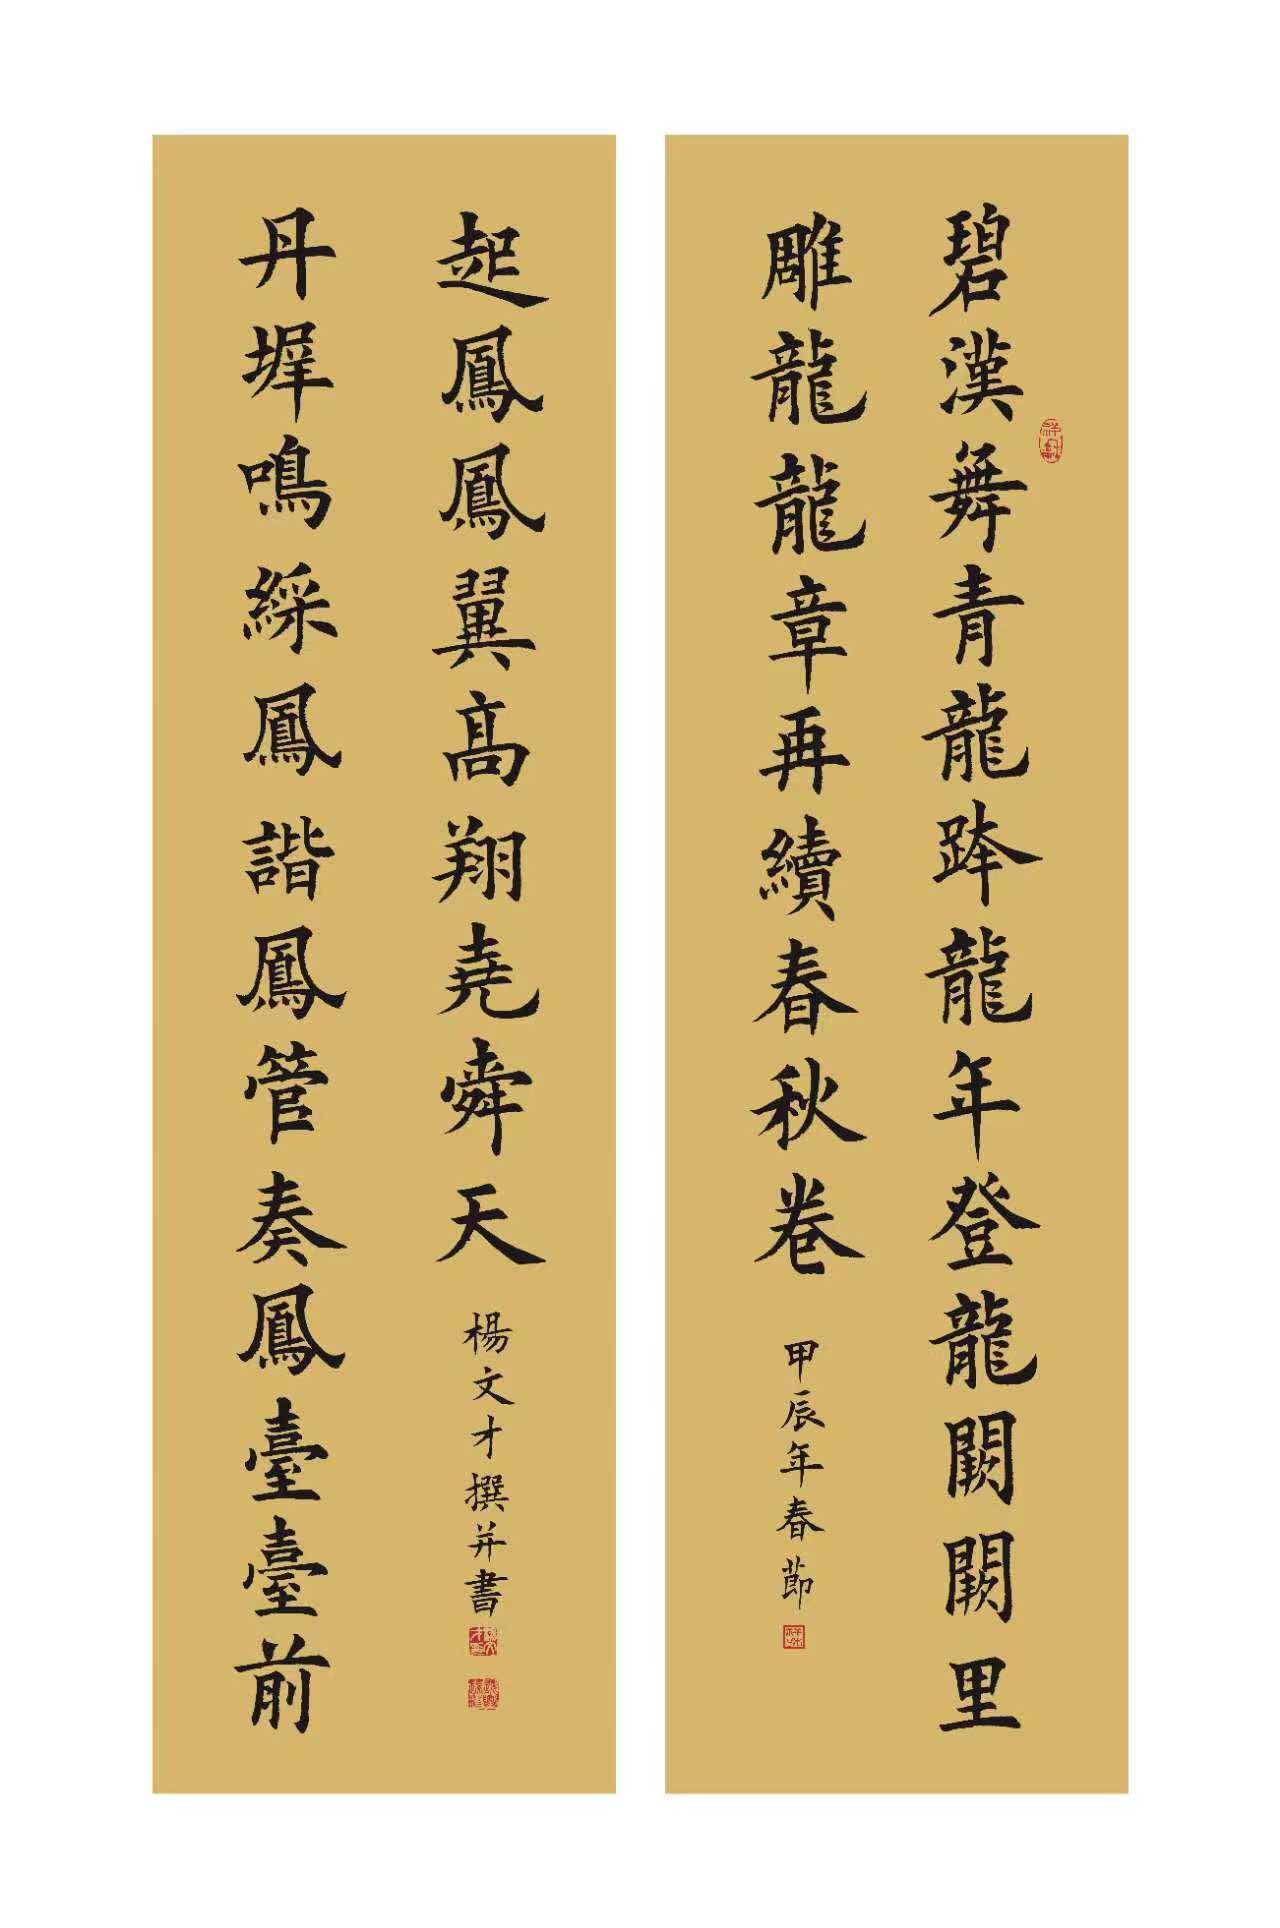 碧漢舞青龍龍年登龍闕闕里
雕龍龍章再續春秋卷
甲辰年春節
丹墀鳴綵鳳諧鳳管奏鳳臺臺前
起鳳鳳翼高翔堯舜天
楊文才撰并書